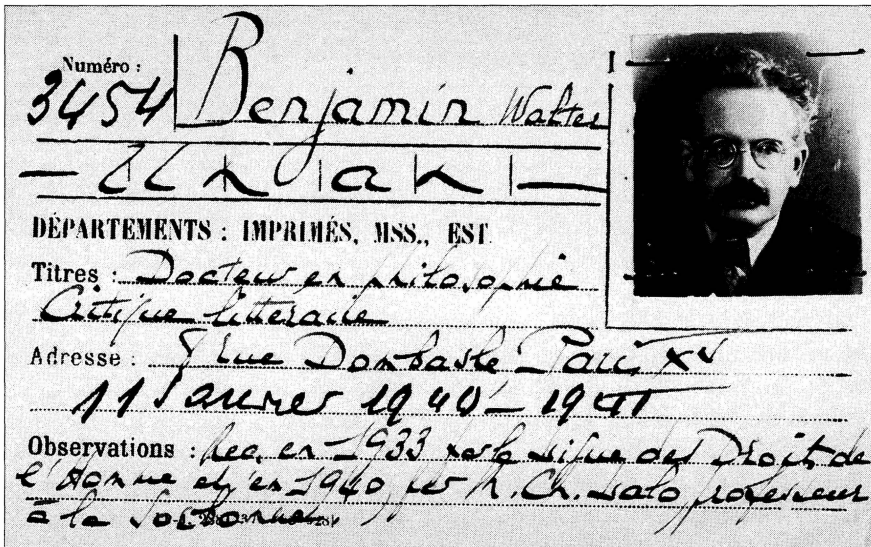 Numéro :
3454 Benjamin Walter
DÉPARTEMENTS : IMPRIMÉS, MSS., EST.
Titres : Docteur en philosophie
Critique litteraire
Adresse : rue Dombasle Paris XV
11 Janvier 1940 – 1941
Observations : Rec. en 1933 par la Ligue des Droits de
l'Homme et en 1940 par M. Ch. Lalo professeur
à la Sorbonne